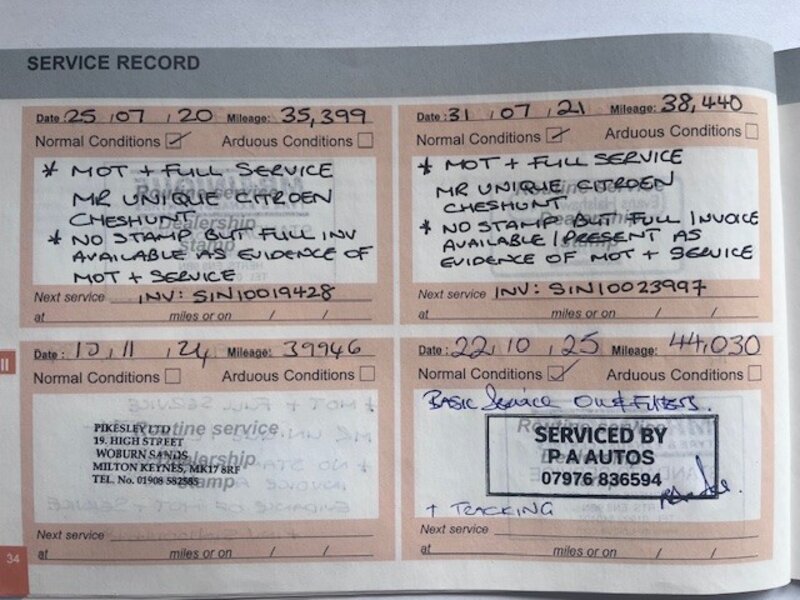 SERVICE RECORD
Date: 25 / 07 / 20 Mileage: 35,399
Normal Conditions ✓ Arduous Conditions
* MOT + FULL SERVICE
MR UNIQUE CITROEN
CHESHUNT
* NO STAMP BUT FULL INV
AVAILABLE AS EVIDENCE OF
MOT + SERVICE
Next service INV: SIN10019428
at miles or on / /
Date: 31 / 07 / 21 Mileage: 38,440
Normal Conditions ✓ Arduous Conditions
* MOT + FULL SERVICE
MR UNIQUE CITROEN
CHESHUNT
* NO STAMP BUT FULL INVOICE
AVAILABLE / PRESENT AS
EVIDENCE OF MOT + SERVICE
Next service INV: SIN10023997
at miles or on / /
Date: 11 24 Mileage: 39946
Normal Conditions Arduous Conditions
Routine service
Dealership
stamp
PIKESLEY LTD
19. HIGH STREET
WOBURN SANDS
MILTON KEYNES, MK17 8RF
TEL. No. 01908 582585
Next service
at miles or on / /
Date: 22, 10, 25 Mileage: 44,030
Normal Conditions ✓ Arduous Conditions
BASIC Service Oil & Filters.
SERVICED BY
P A AUTOS
07976 836594
+ TRACKING
Next service
at miles or on / /
34